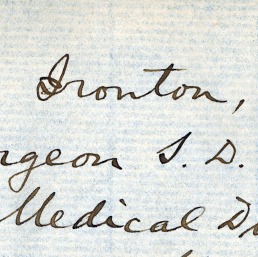 Ironton,
rgeon S. D.
Medical Di